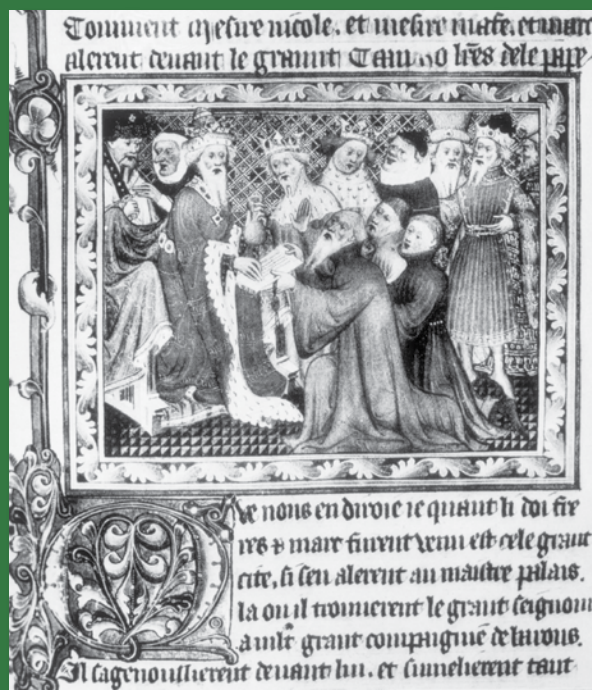 Comment mesire nicole. et mesire mafe. et marc
alerent deuant le grannt lrēs dele pape
Que nous en diroie ie quant li doi fre
res marc furent venu est cele grant
cite. si sen alerent au maistre palais.
la ou il trouuerent le grant seignour
grant compaignie de barons.
Il sagenoullierent deuant lui. et tant